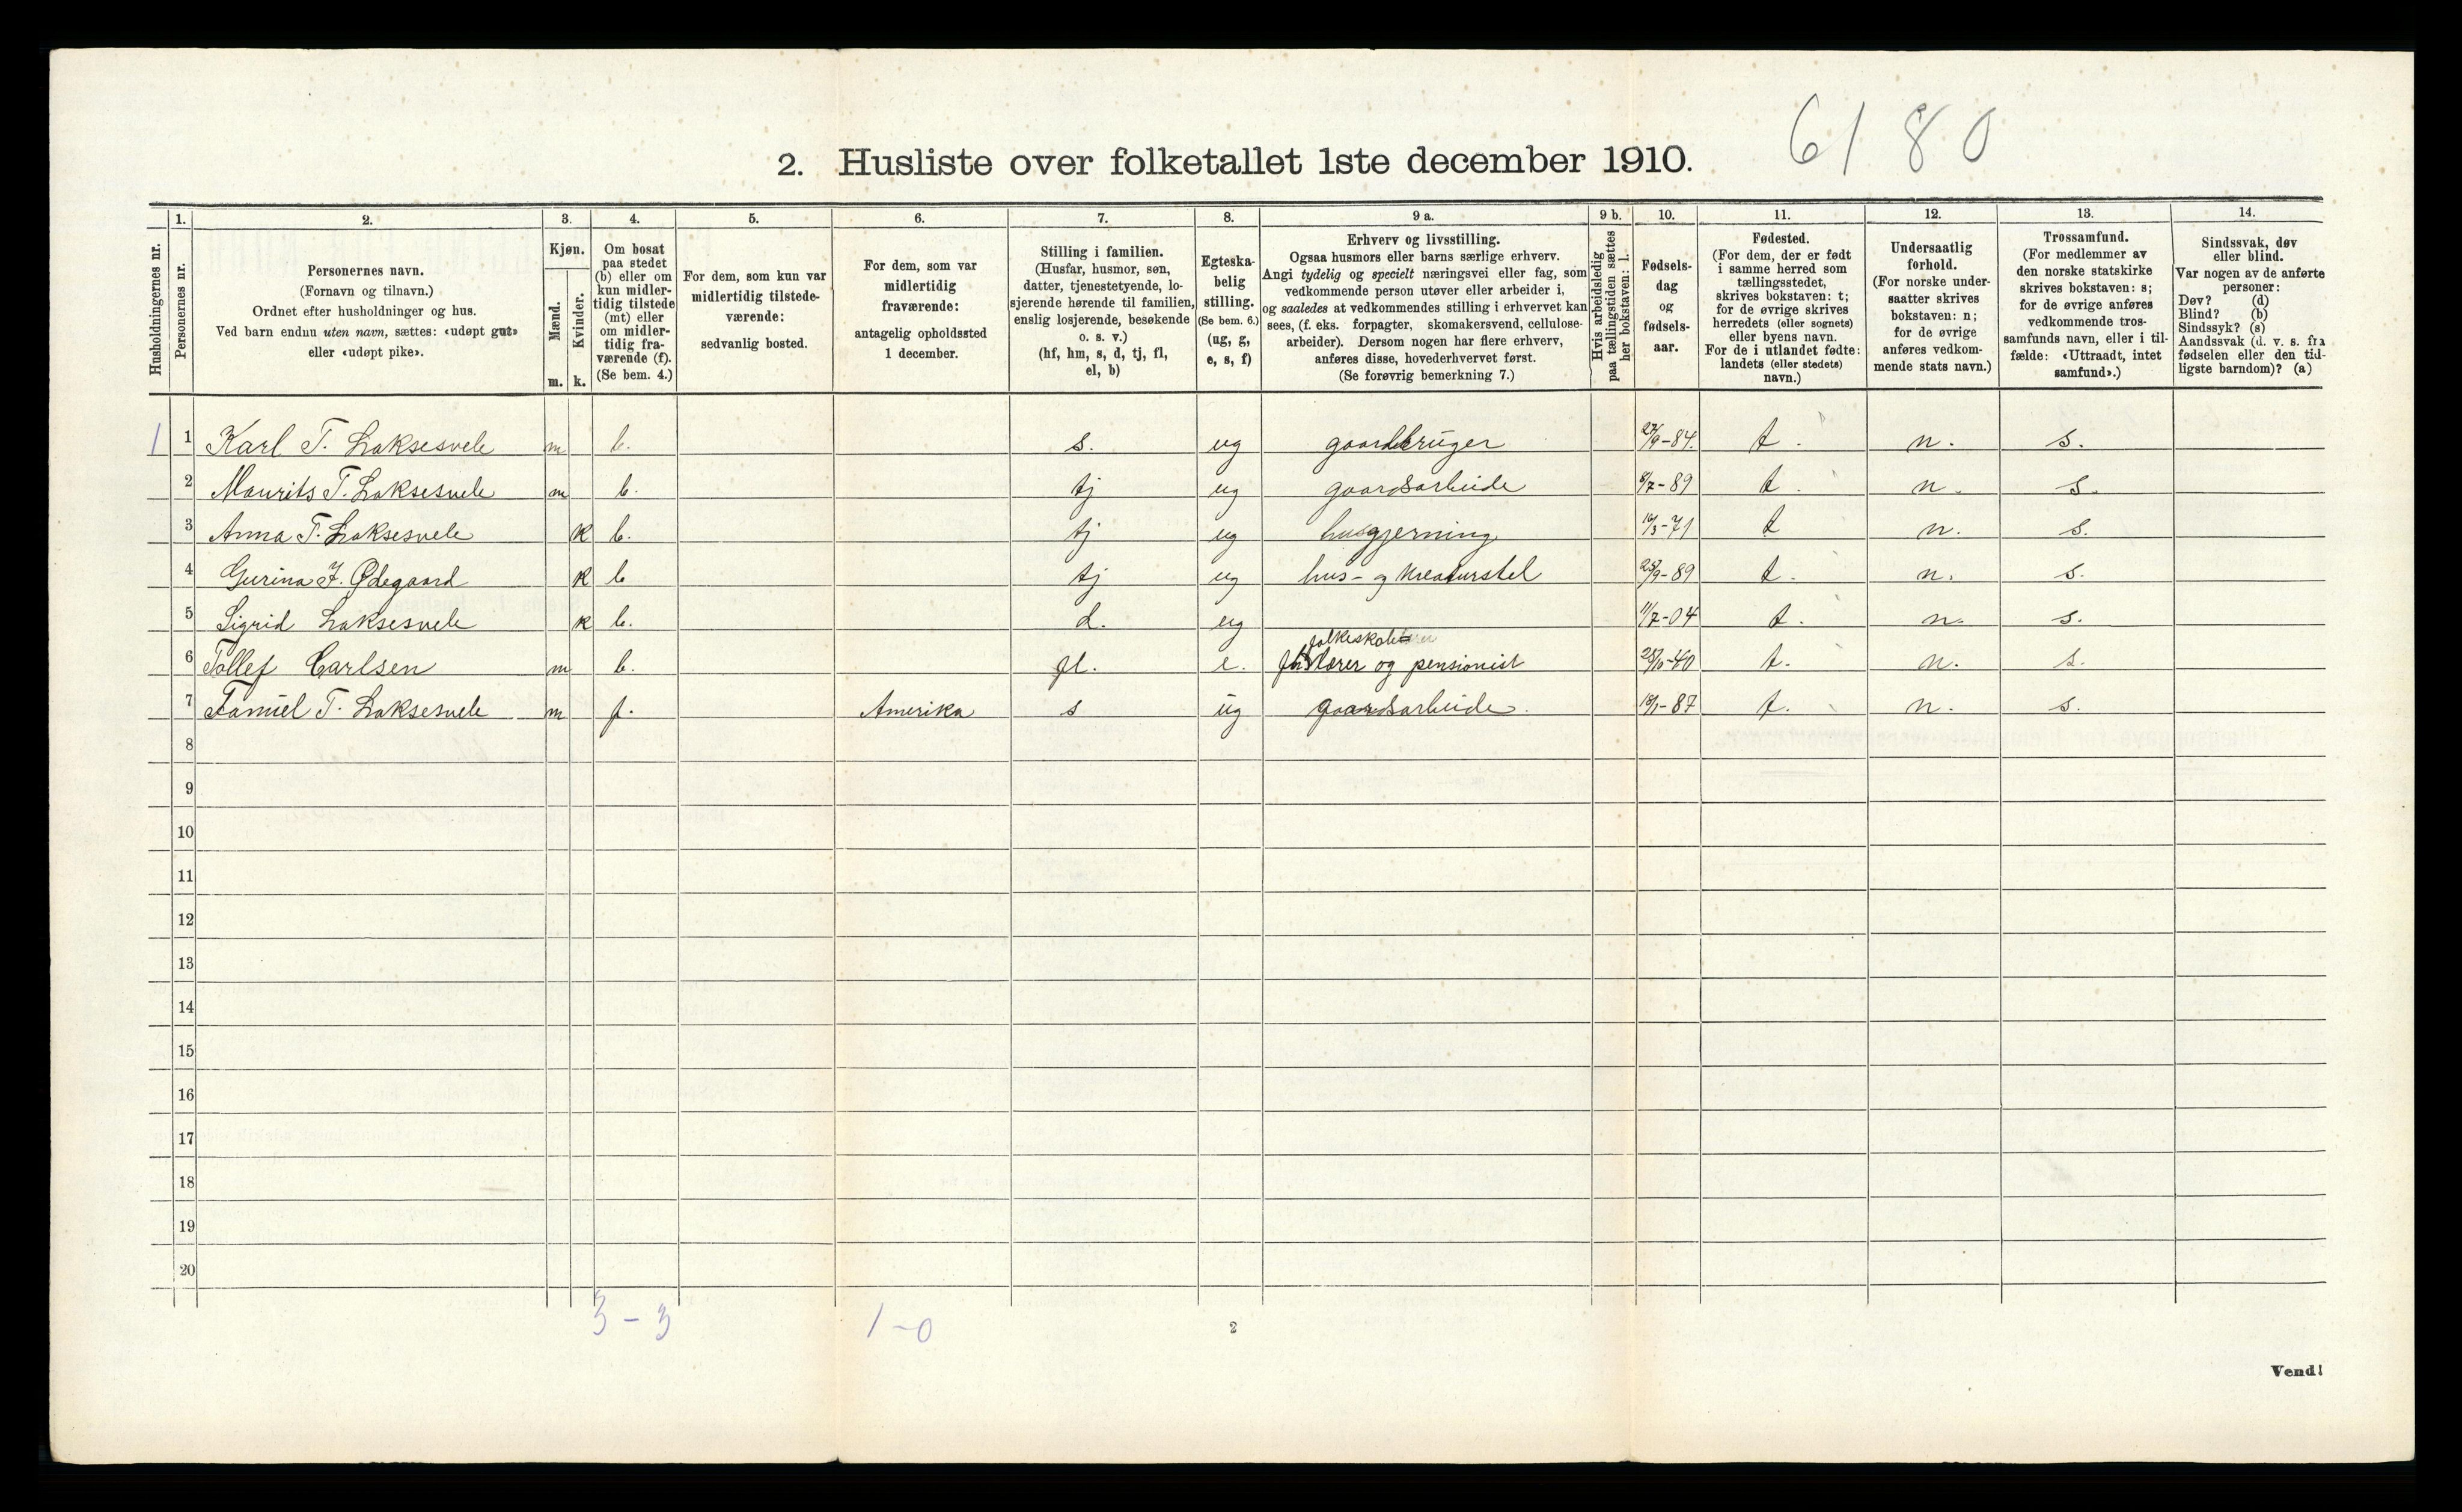 6180
2. Husliste over folketallet 1ste december 1910.
Husholdningernes nr.
1.
Personernes nr.
2.
Personernes navn.
(Fornavn og tilnavn.)
Ordnet efter husholdninger og hus.
Ved barn endnu uten navn, sættes: «udøpt gut»
eller «udøpt pike».
3.
Kjøn.
Mænd.
m.
Kvinder.
k.
4.
Om bosat
paa stedet
(b) eller om
kun midler-
tidig tilstede
(mt) eller
om midler-
tidig fra-
værende (f).
(Se bem. 4.)
5.
For dem, som kun var
midlertidig tilstede-
værende:
sedvanlig bosted.
6.
For dem, som var
midlertidig
fraværende:
antagelig opholdssted
1 december.
7.
Stilling i familien.
(Husfar, husmor, søn,
datter, tjenestetyende, lo-
sjerende hørende til familien,
enslig losjerende, besøkende
o. s. v.)
(hf, hm, s, d, tj, fl,
el, b)
8.
Egteska-
belig
stilling.
(Se bem. 6.)
(ug, g,
e, s, f)
9 a.
Erhverv og livsstilling.
Ogsaa husmors eller barns særlige erhverv.
Angi tydelig og specielt næringsvei eller fag, som
vedkommende person utøver eller arbeider i,
og saaledes at vedkommendes stilling i erhvervet kan
sees, (f. eks. forpagter, skomakersvend, cellulose-
arbeider). Dersom nogen har flere erhverv,
anføres disse, hovederhvervet først.
(Se forøvrig bemerkning 7.)
9 b.
Hvis arbeidsledig
paa tællingstiden sættes
her bokstaven: l.
10.
Fødsels-
dag
og
fødsels-
aar.
11.
Fødested.
(For dem, der er født
i samme herred som
tællingsstedet,
skrives bokstaven: t;
for de øvrige skrives
herredets (eller sognets)
eller byens navn.
For de i utlandet fødte:
landets (eller stedets)
navn.)
12.
Undersaatlig
forhold.
(For norske under-
saatter skrives
bokstaven: n;
for de øvrige
anføres vedkom-
mende stats navn.)
13.
Trossamfund.
(For medlemmer av
den norske statskirke
skrives bokstaven: s;
for de øvrige anføres
vedkommende tros-
samfunds navn, eller i til-
fælde: «Uttraadt, intet
samfund».)
14.
Sindssvak, døv
eller blind.
Var nogen av de anførte
personer:
Døv? (d)
Blind? (b)
Sindssyk? (s)
Aandssvak (d. v. s. fra
fødselen eller den tid-
ligste barndom)? (a)
1 1 Karl T. Laksesvele m b. s. ug gaardbruger 27/9-84. t. n. s.
2 Maurits T. Laksesvele m b. tj ug gaardsarbeide 8/7-89 t. n. s.
3 Anna T. Laksesvele k b. tj ug husgjerning 16/3-71 t n. s.
4 Gurina J. Ødegaard k b tj ug hus- og kreaturstel 28/9-89 t. n. s.
5 Sigrid Laksesvele k b. d. ug 11/7-04 t. n. s.
folkeskole
6 Tollef Carlsen m b. fl. e. lærer og pensionist -40 t. n. s.
7 Samuel T. Laksesvele m f. Amerika s ug gaardsarbeide. -87 t. n. s.
8
9
10
11
12
13
14
15
16
17
18
19
20
3-3 1-0
2
Vend!